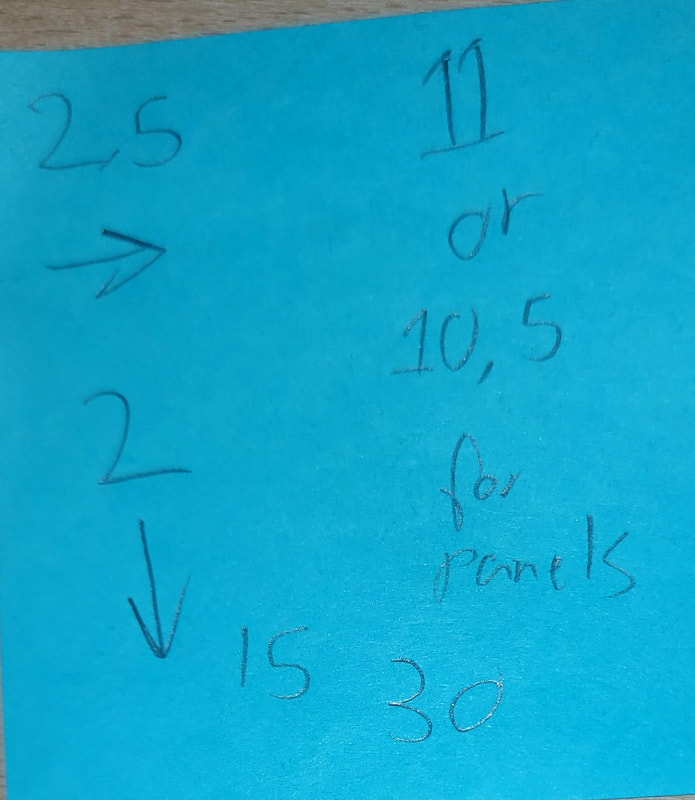 2,5
→
2
↓
11
or
10,5
for
panels
15 30